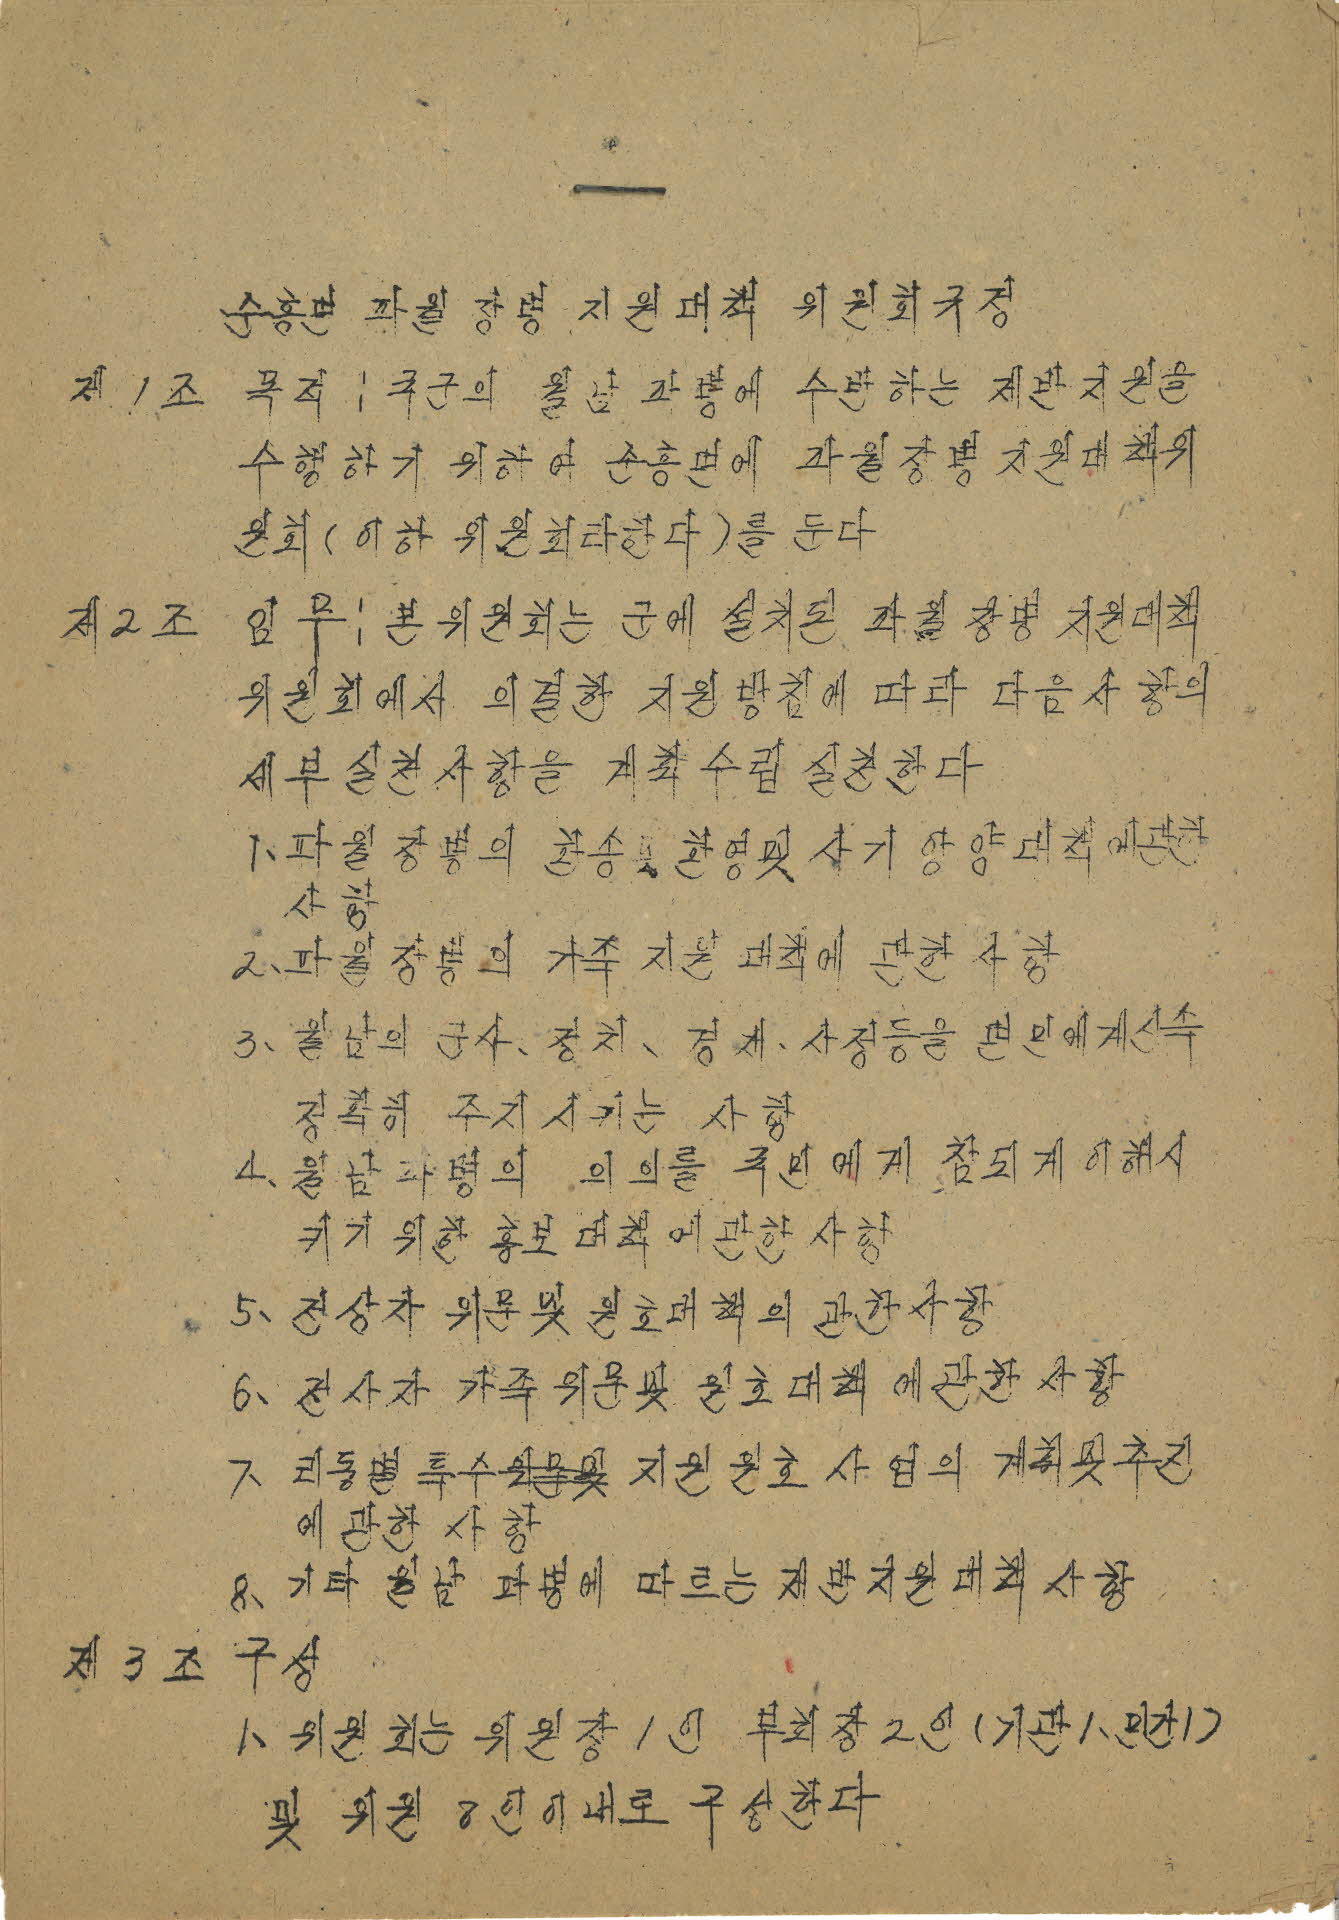 순흥면 파월 장병 지원대책 위원회규정
제1조 목적 : 국군의 월남 파병에 수반하는 제반지원을
수행하기 위하여 순흥면에 파월장병지원대책위
원회(이하 위원회라한다)를 둔다
제2조 임무 : 본위원회는 군에 설치된 파월장병지원대책
위원회에서 의결한 지원방침에 따라 다음사항의
세부실천사항을 계획수립 실천한다
1、파월장병의 환송및환영및사기앙양대책에관한
사항
2、파월장병의 가족지원대책에 관한사항
3、월남의 군사、정치、경제、사정등을 면민에게신속
정확히 주지시키는 사항
4、월남파병의 의의를 국민에게 참되게이해시
키기위한 홍보대책에관한사항
5、전상자 위문및 원호대책의관한사항
6、전사자 가족위문및 원호대책에관한사항
7、리동별 특수원문및 지원원호사업의 계획및추진
에관한사항
8、기타 월남파병에 따르는 제반지원대책사항
제3조 구성
1、위원회는 위원장1인 부회장2인(기관1、민간1)
및 위원 8인이내로 구성한다